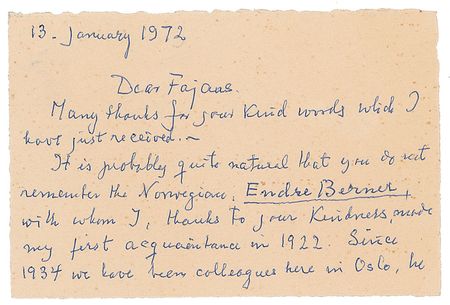 13. January 1972
Dear Fajans.
Many thanks for your kind words which I
have just received.—
It is probably quite natural that you do not
remember the Norwegian, Endre Berner,
with whom I, thanks to your kindness, made
my first acquaintance in 1922. Since
1934 we have been colleagues here in Oslo, he